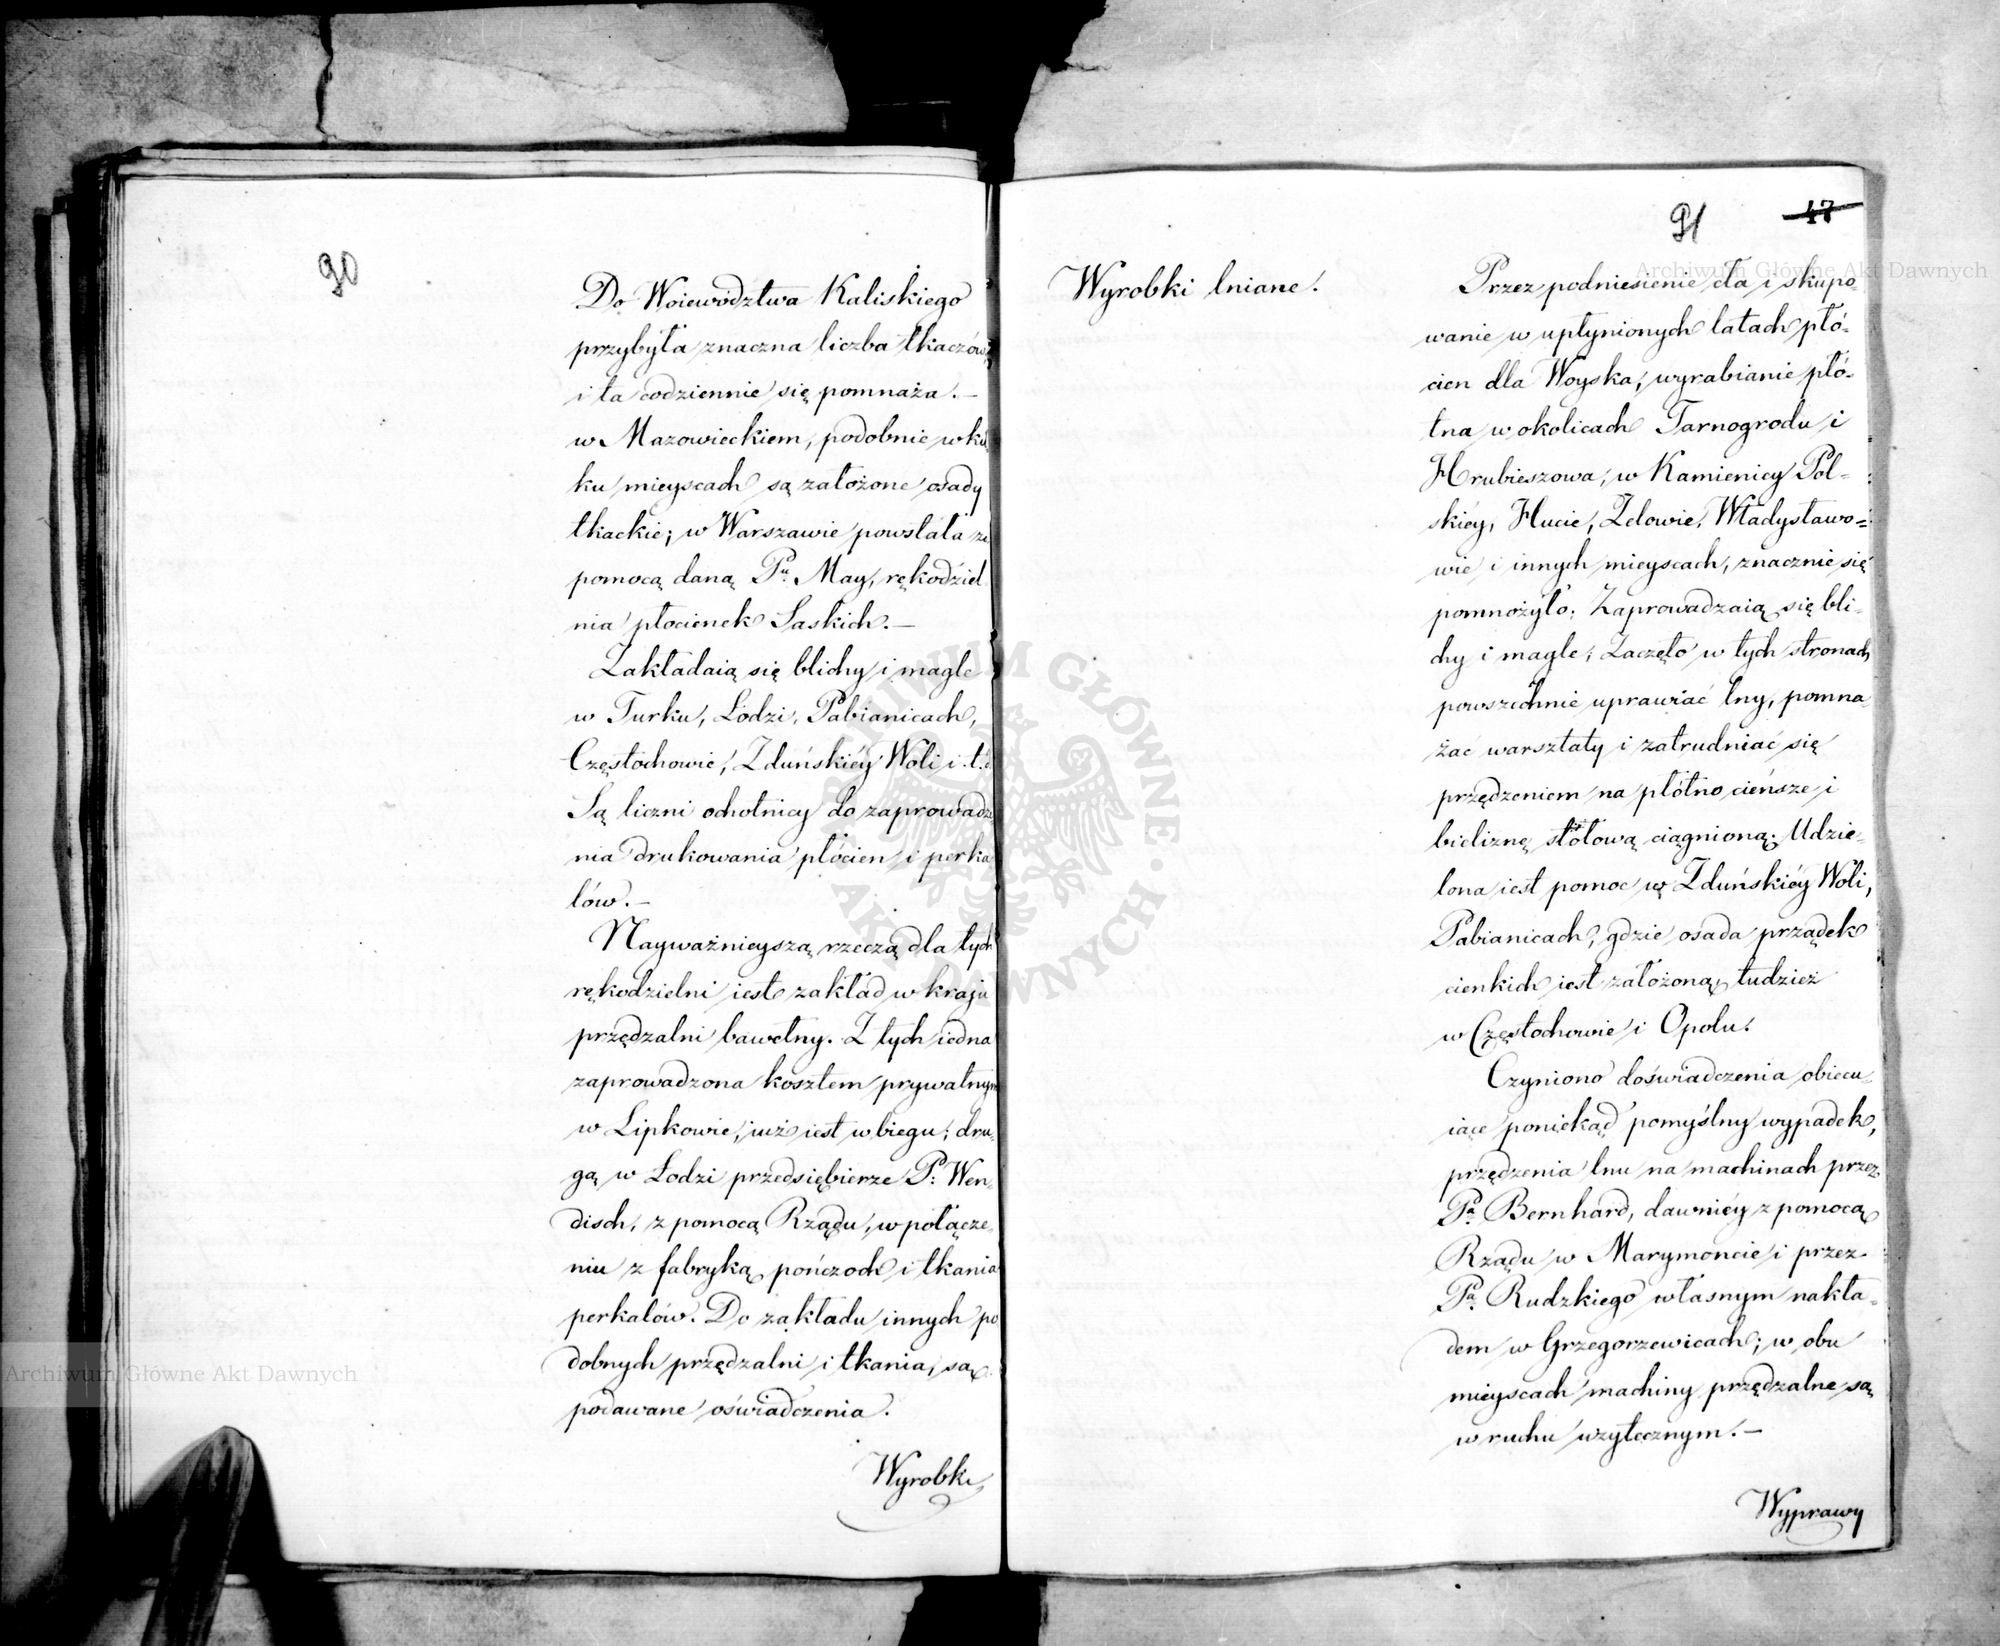 90
Do Woiewództwa Kaliskiego
przybyła znaczna liczba tkaczów
i ta codziennie się pomnaża. —
w Mazowieckiem, podobnie w kil
ku mieyscach są założone osady
tkackie; w Warszawie powstała za
pomocą daną Pu. May, rękodziel
nia płocienek Saskich. —
Zakładaią się blichy i magle
w Turku, Łodzi, Pabianicach,
Częstochowie, Zduńskiéy Woli i t. d.
Są liczni ochotnicy do zaprowadze
nia drukowania płócien i perka
lów. —
Nayważnieyszą rzeczą dla tych
rękodzielni iest zakład w kraju
przędzalni bawełny. Z tych iedna
zaprowadzona kosztem prywatnym
w Lipkowie, iuż iest w biegu; dru-
gą w Łodzi przedsiębierze P. Wen-
disch, z pomocą Rządu, w połącze-
niu z fabryką pończoch i tkania
perkalów. Do zakładu innych po
dobnych przędzalni i tkania, są
podawane oświadczenia.
Wyrobki
91
47
Wyrobki lniane.
Przez podniesienie cła i skupo-
wanie w upłynionych latach płó-
cien dla Woyska, wyrabianie płó-
tna w okolicach Tarnogrodu i
Hrubieszowa, w Kamienicy Pol-
skiéy, Hucie, Zelowie, Władysławo-
wie i innych mieyscach, znacznie się
pomnożyło. Zaprowadzaią się bli-
chy i magle; Zaczęto w tych stronach
powszechnie uprawiać lny, pomna
żać warsztaty i zatrudniać się
przędzeniem na płótno cieńsze i
bieliznę stołową ciągnioną. Udzie-
lona iest pomoc w Zduńskiéy Woli,
Pabianicach, gdzie osada prządek
cienkich iest założoną, tudzież
w Częstochowie i Opolu.
Czyniono doświadczenia obiecu-
iące poniekąd pomyślny wypadek,
przędzenia lnu na machinach przez
Pa. Bernhard, dawniéy z pomocą
Rządu w Marymoncie i przez
Pa. Rudzkiego własnym nakła-
dem w Grzegorzewicach; w obu
mieyscach machiny przędzalne są
w ruchu użytecznym. —
Wyprawy
Archiwum Główne Akt Dawnych
Archiwum Główne Akt Dawnych
ARCHIWUM GŁÓWNE AKT DAWNYCH